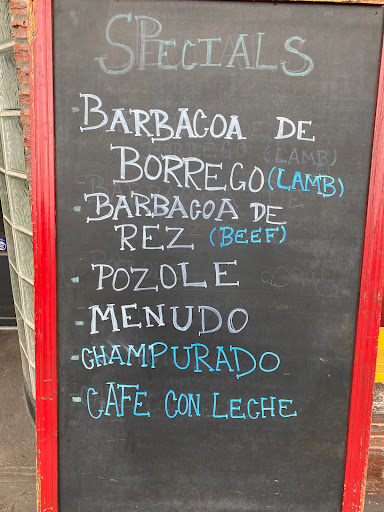 SPECIALS
- BARBACOA DE
BORREGO (LAMB)
- BARBACOA DE
REZ (BEEF)
- POZOLE
- MENUDO
- CHAMPURADO
- CAFE CON LECHE